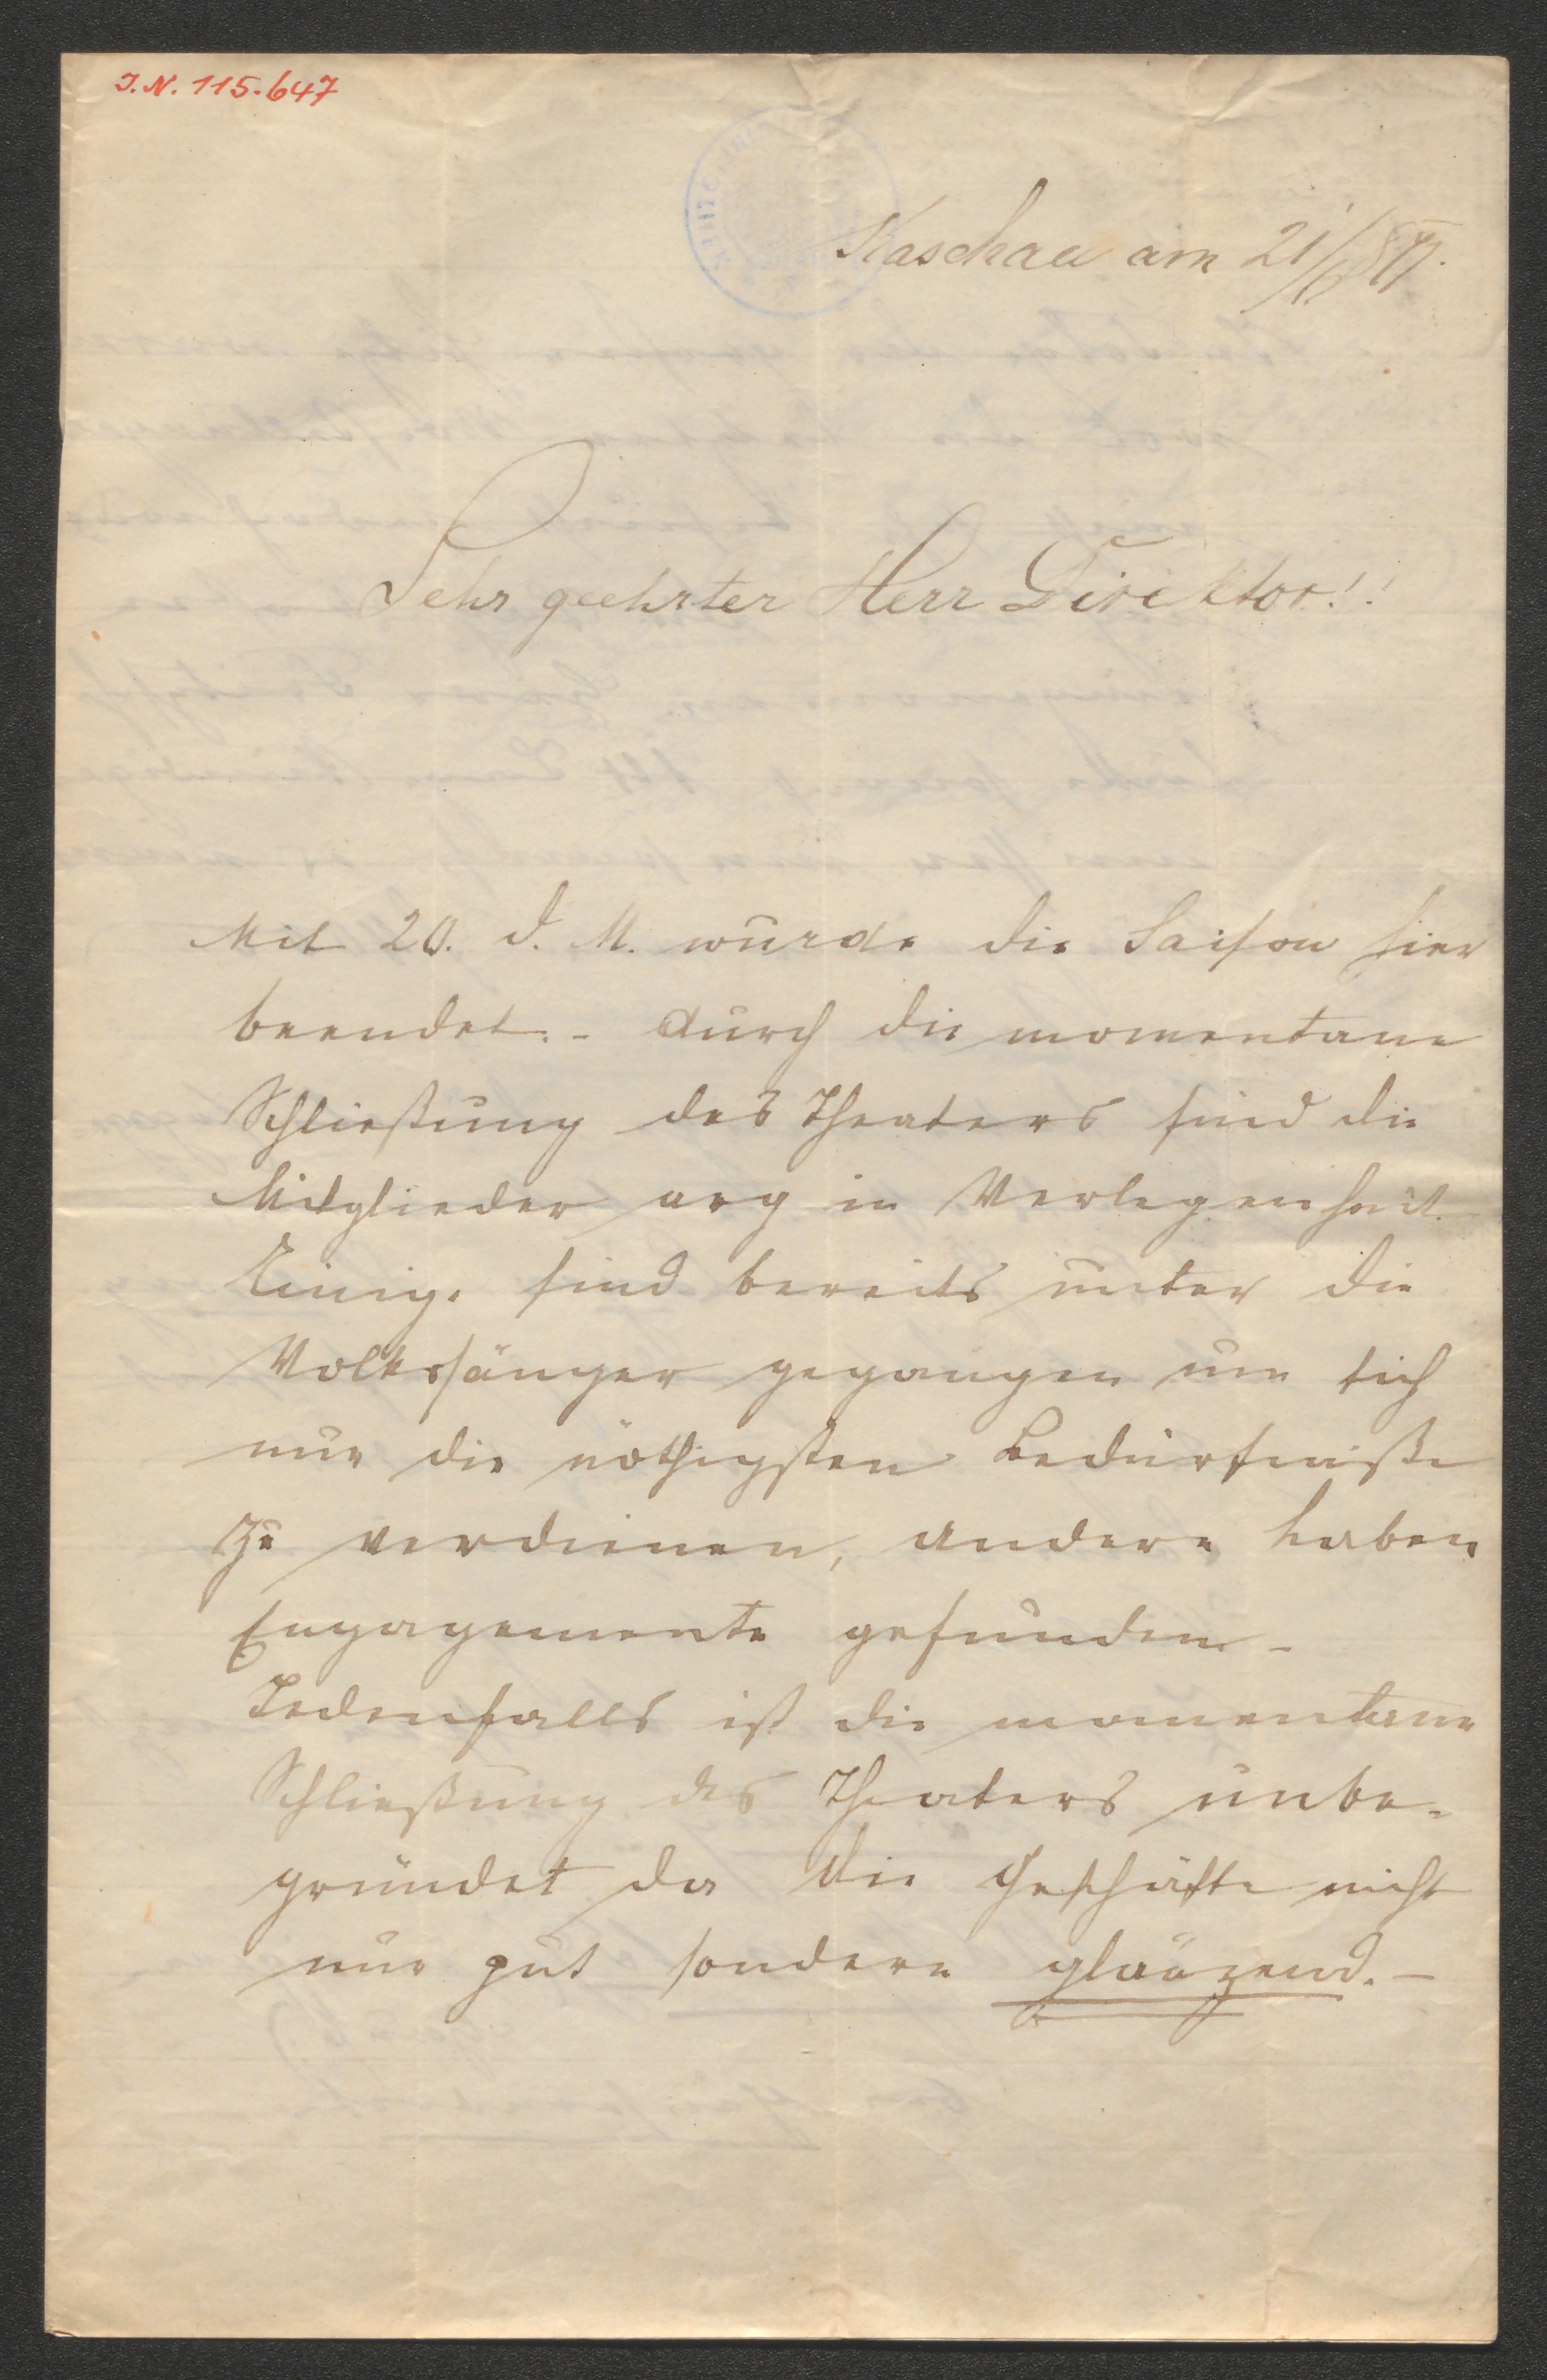 J.N. 115.647
Kaschau am
Sehr geehrter Herr Direktor!!
Mit 20. d. M. wurde die Saison hier
beendet. - Durch die momentane
Schließung des Theaters sind die
Mitglieder arg in Verlegenheit.
Einige sind bereits unter die
Volkssänger gegangen um sich
nur die nöthigsten Bedürfniße
zu verdienen, andere haben
Engagements gefunden -
Jedenfalls ist die momentane
Schließung des Theaters unbe-
gründet da die Geschäfte nicht
nur gut sondern glänzend. -